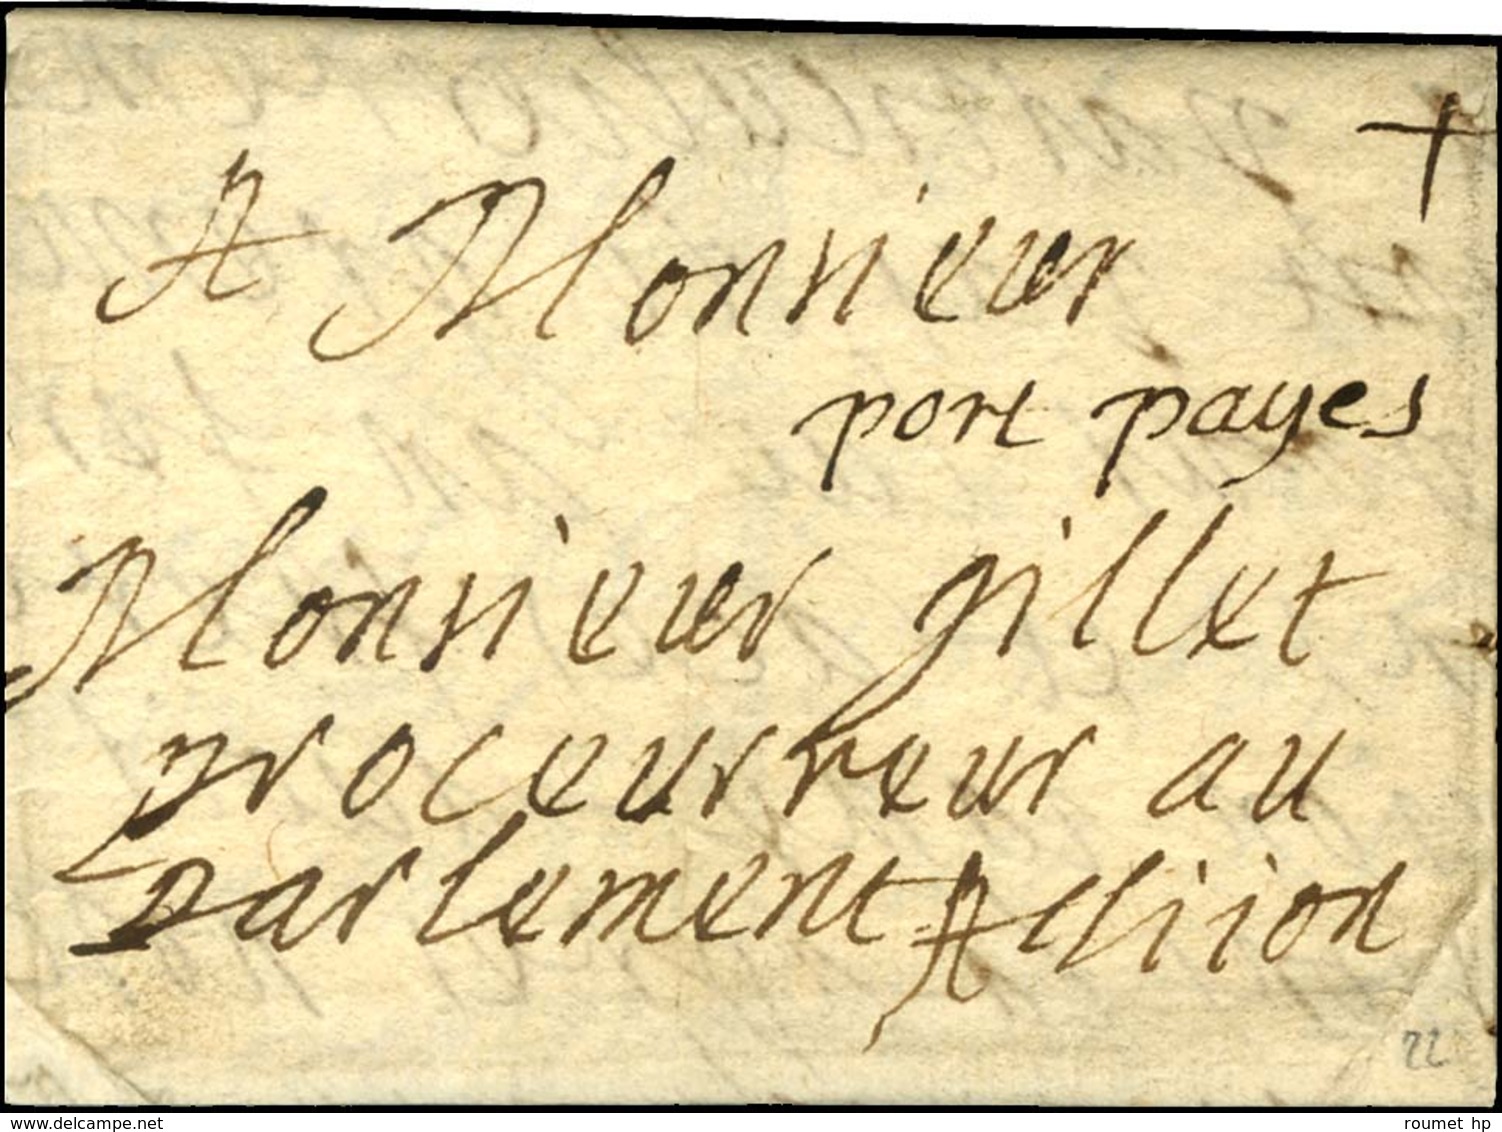 +
A Monsieur
port payes
Monsieur gillet
proceurreur au
parlement A diion
22
www.delcampe.net
roumet hp